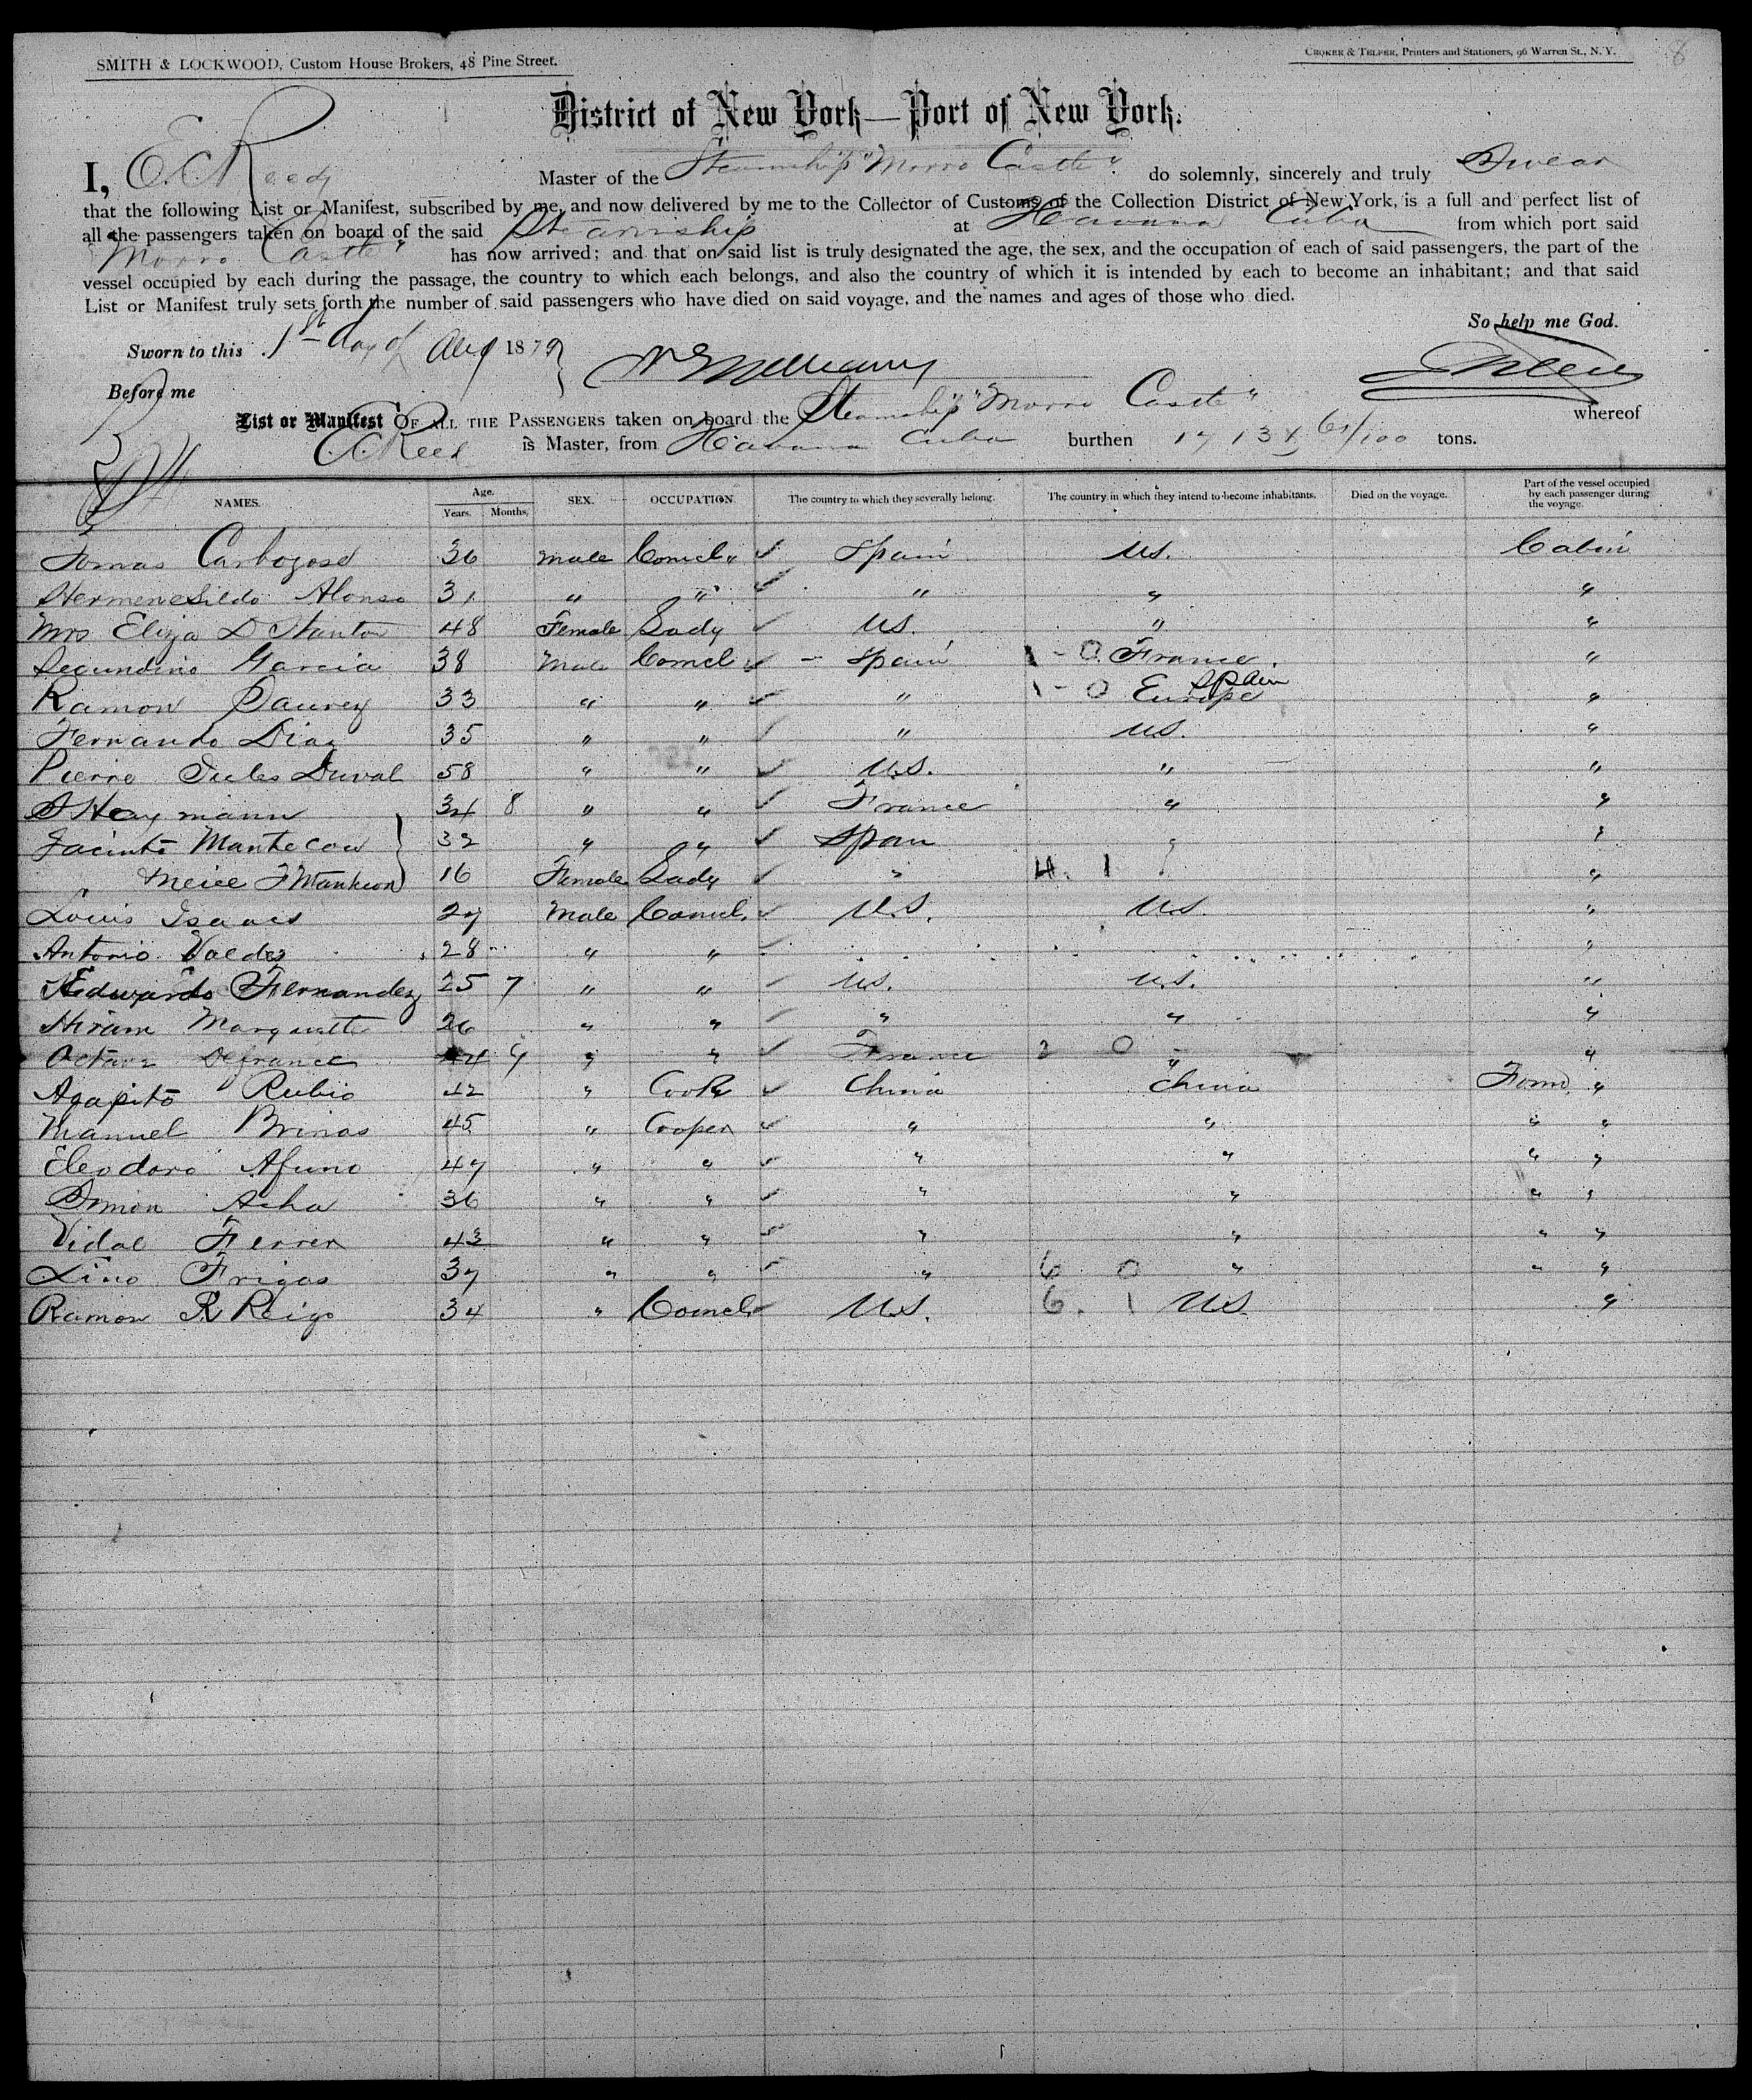 SMITH & LOCKWOOD, Custom House Brokers, 48 Pine Street.
CROKER & TELFER, Printers and Stationers, 96 Warren St., N.Y.
8
District of New York—Port of New York.
I, E. Reed Master of the Steamship "Morro Castle" do solemnly, sincerely and truly Swear
that the following List or Manifest, subscribed by me, and now delivered by me to the Collector of Customs of the Collection District of New York, is a full and perfect list of
all the passengers taken on board of the said Steamship at Havana Cuba from which port said
"Morro Castle" has now arrived; and that on said list is truly designated the age, the sex, and the occupation of each of said passengers, the part of the
vessel occupied by each during the passage, the country to which each belongs, and also the country of which it is intended by each to become an inhabitant; and that said
List or Manifest truly sets forth the number of said passengers who have died on said voyage, and the names and ages of those who died.
So help me God.
Sworn to this 1st day of Aug 1879
Before me
List or Manifest OF ALL THE PASSENGERS taken on board the Steamship "Morro Castle" whereof
E. Reed is Master, from Havana Cuba burthen 1713 61/100 tons.
NAMES. Age. Years. Months. SEX. OCCUPATION. The country to which they severally belong. The country in which they intend to become inhabitants. Died on the voyage. Part of the vessel occupied by each passenger during the voyage.
Tomas 36 Male Comcl. Spain U.S. Cabin
Hermenesildo Alonso 31 " " " " "
Mrs Eliza D Stanton 48 Female Lady U.S. " "
Secundino Garcia 38 Male Comcl. Spain 1 - 0 France "
Ramon 33 " " " 1 - 0 Europe Spain "
Fernando Diaz 35 " " " U.S. "
Pierre Jules Duval 58 " " U.S. " "
Haymann 34 8 " " France " "
Jacinto Mantecon 32 " " Spain " "
" neice F Mantecon 16 Female Lady " 4. 1 " "
Louis Isaacs 27 Male Comcl. U.S. U.S. "
Antonio Valdes 28 " " "
Edwardo Fernandez 25 7 " " U.S. U.S. "
Hiram Marquette 26 " " " " "
Octave Defrance 44 " " France 2 0 " "
Agapito Rubio 42 " Cook China China Forwd "
Manuel Brinas 45 " Cooper " " " "
Eleodoro Afuno 47 " " " " " "
Simon Acha 36 " " " " " "
Vidal Ferrer 43 " " " " " "
Lino Frigas 37 " " " 6 0 " " "
Ramon R Reigo 34 " Comcl. U.S. 6. 1 U.S. "